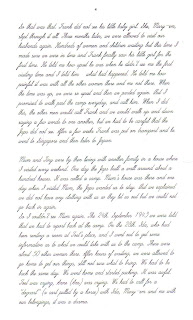 So that was that. Frank did not see his little baby girl Ida, Mary-Ann,
slept through it all. Three months later, we were allowed to visit our
husbands again. Hundreds of women and children waiting but this time I
made sure we were in front and Frank finally saw his little girl for the
first time. He told me how upset he was when he didn't see us the first
visiting time and I told him what had happened. He told me how
painful it was with all the other women there and me not there. When
the time was up, we were so upset and then we parted again. But I
promised to walk past the camp everyday, and call him. When I did
this, the other men would call Frank and we would walk up and down
saying a few words to one another, but we had to be careful that the
Japs did not see. After a few weeks Frank was put on transport and he
went to Singapore and then later to Japan.
Mum and Joey were by then living with another family in a house where
I visited every weekend. One day the Japs built a wall around about a
hundred houses. It was called a camp. Mum's house was there and one
day when I visited Mum, the Japs wanted us to stay. But we explained
we did not have any clothing with us so they let us out but we could not
go back in again.
So I couldn't see Mum again. The 29th September, 1943 we were told
that we had to report back at the camp. On the 28th, Ida, who had
been renting a room at Dad's place, and I went out to get some
information as to what we could take with us to the camp. There were
about 50 other women there. After hours of waiting, we were allowed to
go home to get our things, still not sure what to bring. We had to be
back the same day. We went home and started packing. It was awful.
Dad was crying, Irene (Ann) was crying. We had to call for a
with Ida, Mary-Ann and me with
our belongings, it was a drama.